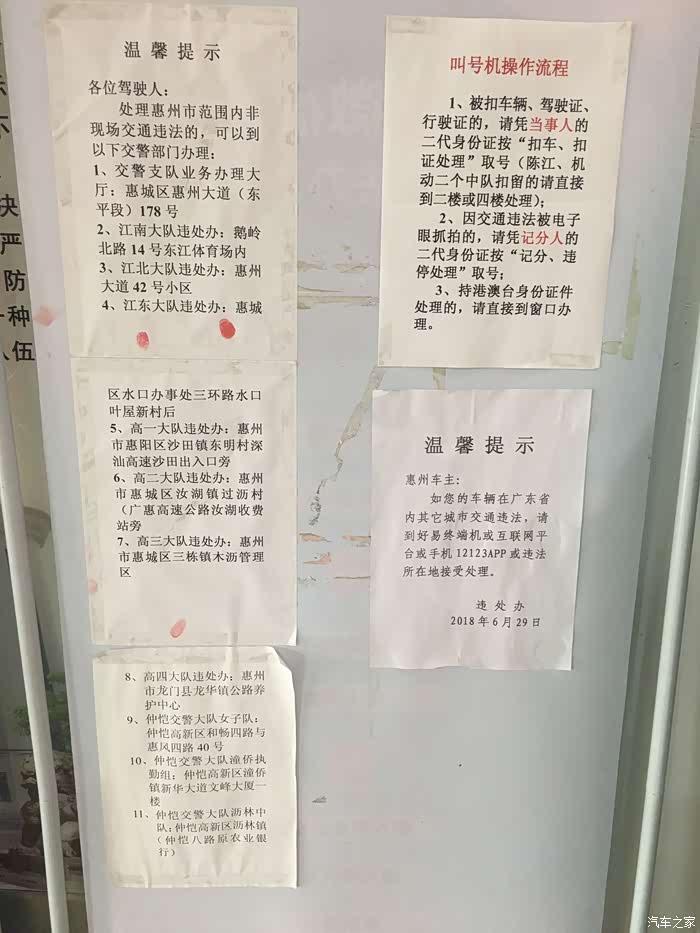 温馨提示
各位驾驶人：
处理惠州市范围内非
现场交通违法的，可以到
以下交警部门办理：
1、交警支队业务办理大
厅：惠城区惠州大道（东
平段）178号
2、江南大队违处办：鹅岭
北路14号东江体育场内
3、江北大队违处办：惠州
大道42号小区
4、江东大队违处办：惠城
区水口办事处三环路水口
叶屋新村后
5、高一大队违处办：惠州
市惠阳区沙田镇东明村深
汕高速沙田出入口旁
6、高二大队违处办：惠州
市惠城区汝湖镇过沥村
（广惠高速公路汝湖收费
站旁
7、高三大队违处办：惠州
市惠城区三栋镇木沥管理
区
8、高四大队违处办：惠州
市龙门县龙华镇公路养
护中心
9、仲恺交警大队女子队：
仲恺高新区和畅四路与
惠风四路40号
10、仲恺交警大队潼侨执
勤组：仲恺高新区潼侨
镇新华大道文峰大厦一
楼
11、仲恺交警大队沥林中
队：仲恺高新区沥林镇
（仲恺八路原农业银
行）
叫号机操作流程
1、被扣车辆、驾驶证、
行驶证的，请凭当事人的
二代身份证按“扣车、扣
证处理”取号（陈江、机
动二个中队扣留的请直接
到二楼或四楼处理）；
2、因交通违法被电子
眼抓拍的，请凭记分人的
二代身份证按“记分、违
停处理”取号；
3、持港澳台身份证件
处理的，请直接到窗口办
理。
温馨提示
惠州车主：
如您的车辆在广东省
内其它城市交通违法，请
到好易终端机或互联网平
台或手机12123APP或违法
所在地接受处理。
违处办
2018年6月29日
决
严
防
一种
队伍
汽车之家